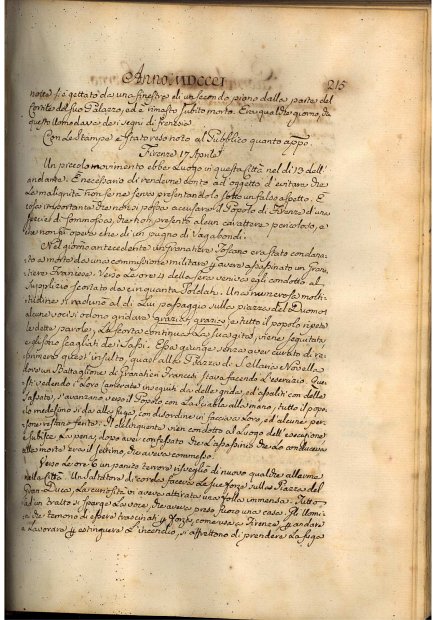 Anno MDCCCI
215
notte si è gettato da una finestra di un secondo piano dalla parte del
Cortile del suo Palazzo, ed è rimasto subito morto. Era qualche giorno, che
quest'Uomo dava dei segni di frenesia.
Con le Stampe è stato reso noto al Pubblico quanto appo.
Firenze 17 Aprile
Un piccolo movimento ebbe luogo in questa Città nel dì 13 dell'
andante. È necessario di renderne conto ad oggetto d'evitare che
la malignità non se ne serva presentandolo sotto un falso aspetto. È
cosa importante che non si possa accusare il Popolo di Firenze d'una
specie di sommossa, che non presentò alcun carattere pericoloso, e
che non fu opera che di un pugno di Vagabondi.
Nel giorno antecedente un granatiere Toscano era condannato
a morte da una commissione militare per avere assassinato un Gran-
tiere Francese. Verso le ore 4 della sera veniva egli condotto al
Supplizio scortato da cinquanta Soldati. Una numerosa molti-
tudine si radunò al di lui passaggio sulla piazza del Duomo
alcune voci s'odono gridare grazia, grazia, e tutto il popolo ripete
le dette parole, la scorta continua la sua gita, viene seguitata,
e gli sono scagliati dei Sassi. Essa giunge senza aver curato di re-
primere questo insulto, quasi alla Piazza di S. Maria Novella
dove un Battaglione di Granatieri Francesi stava facendo l'esercizio. Que-
sti vedendo i loro Camerate inseguiti da delle grida, ed assaliti con delle
sassate, s'avanzano verso il Popolo con la Sciabla alla mano, tutto il popo-
lo medesimo si dà alla fuga, con disordine in faccia a loro, ed alcune per-
sone restano ferite. Il delinquente vien condotto al Luogo dell'esecuzione
e subisce la pena, dopo aver confessato che l'assassinio che lo conduceva
alla morte era il settimo, che aveva commesso.
Verso le ore 6 un panico terrore risvegliò di nuovo qualche allarme
nella Città. Un Saltatore di corda faceva le sue forze sulla Piazza del
Gran Duca, la curiosità vi aveva attirata una folla immensa. Tutto
ad un tratto si sparge la voce, che aveva preso fuoco una casa. Gli Uomi-
ni che temono di essere trascinati per forza, come usa a Firenze, per andare
a lavorare per estinguere l'incendio, si affrettono di prendere la fuga